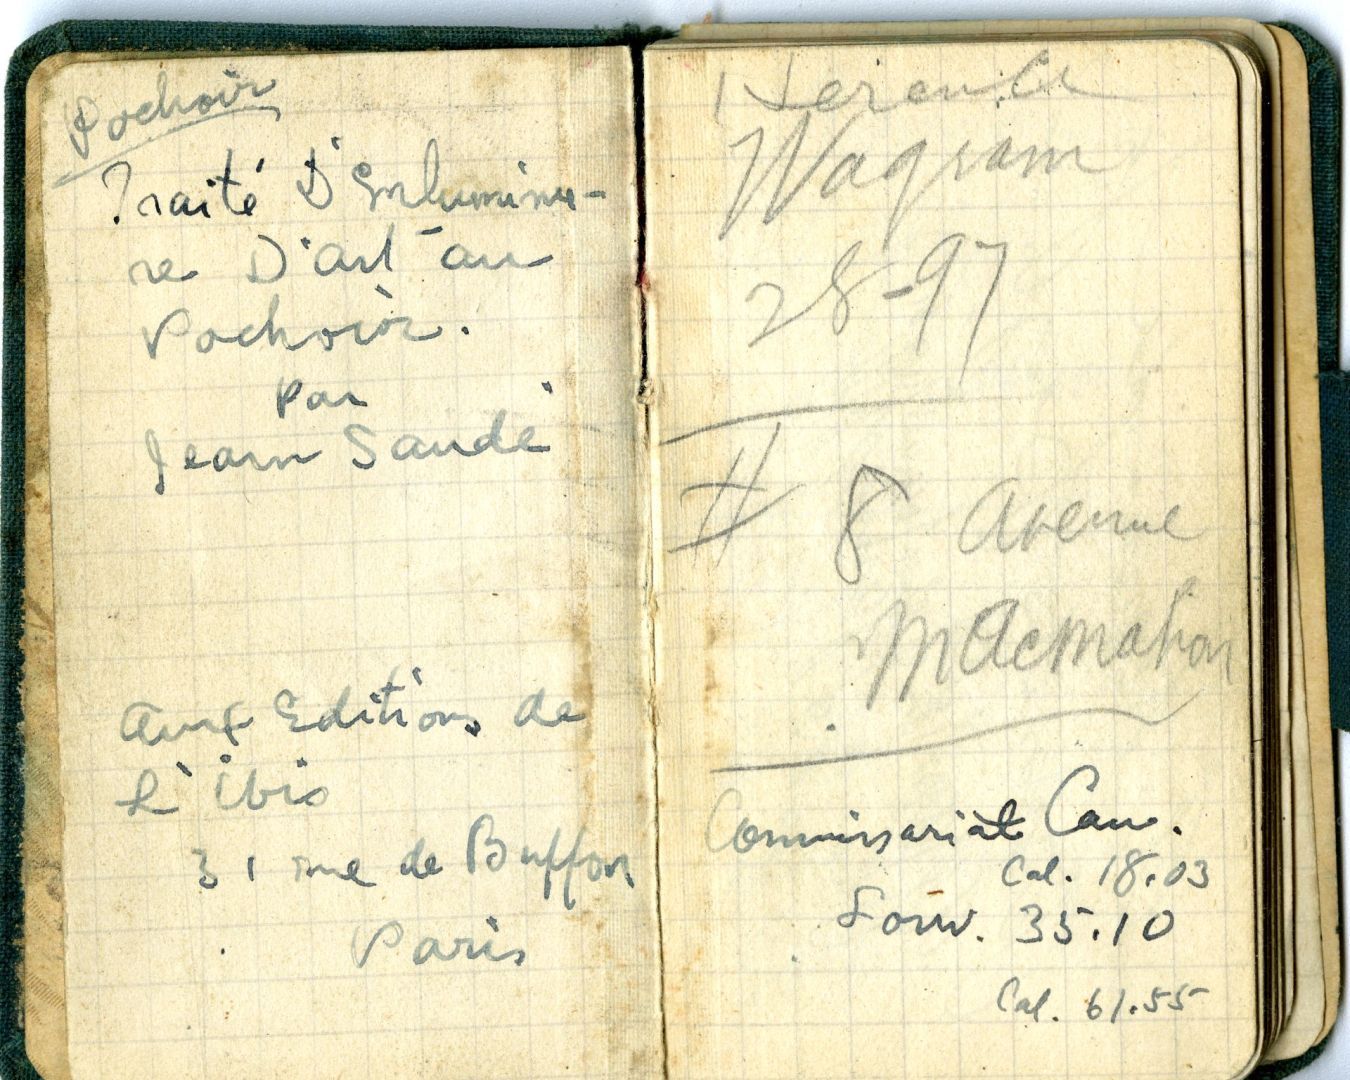 Pochoir
Traité D'Enluminu-
re D'art au
Pochoir.
par
Jean Saudé
Aux Editions de
L'ibis
31 rue de Buffon
Paris
Wagram
28-97
8 Avenue
MacMahon
Commissariat Can.
Cal. 18.03
Louv. 35.10
Cal. 61.55